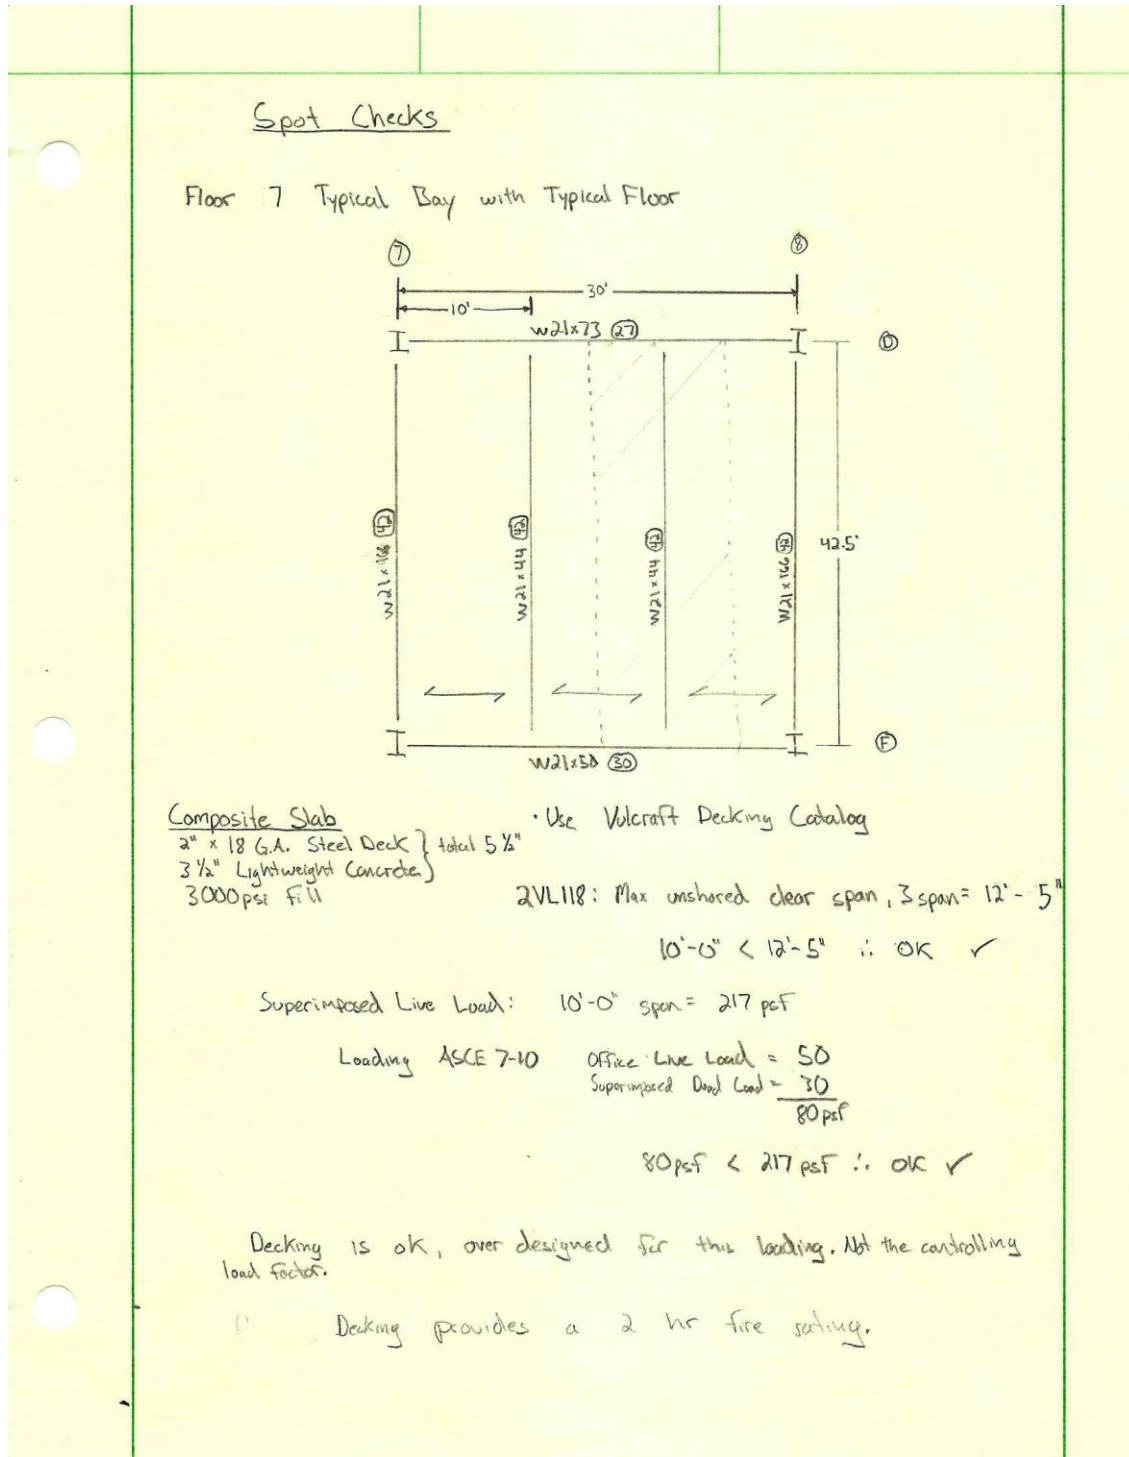 Spot Checks
Floor 7 Typical Bay with Typical Floor
7
8
30'
10'
W21x73 27
D
W21x166 42
W21x44 42
W21x44 42
W21x166 42
42.5'
F
W21x50 30
Composite Slab
2" x 18 G.A. Steel Deck } total 5 ½"
3 ½" Lightweight Concrete
3000psi fill
· Use Vulcraft Decking Catalog
2VL118: Max unshored clear span, 3 span = 12'-5"
10'-0" < 12'-5" ∴ OK ✓
Superimposed Live Load: 10'-0" span = 217 psf
Loading ASCE 7-10 Office Live Load = 50
Superimposed Dead Load = 30
80 psf
80psf < 217 psf ∴ OK ✓
Decking is ok, over designed for this loading. Not the controlling
load factor.
Decking provides a 2 hr fire rating.